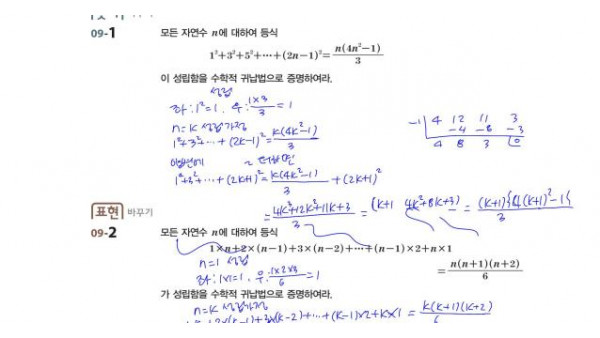 09-1 모든 자연수 n에 대하여 등식
1²+3²+5²+⋯+(2n−1)²=n(4n²−1)/3
이 성립함을 수학적 귀납법으로 증명하여라.
성립
좌:1²=1, 우:1×3/3=1
n=k 성립가정
1²+3²+⋯+(2k−1)²=k(4k²−1)/3
-1 | 4 12 11 3
-4 -8 -3
4 8 3 0
더하면
1²+3²+⋯+(2k+1)²=k(4k²−1)/3+(2k+1)²
=4k³+12k²+11k+3/3=(k+1 4k²+8k+3)=(k+1){4(k+1)²−1}/3
표현 바꾸기
09-2 모든 자연수 n에 대하여 등식
1×n+2×(n−1)+3×(n−2)+⋯+(n−1)×2+n×1
=n(n+1)(n+2)/6
n=1 성립
좌:1×1=1, 우:1×2×3/6=1
가 성립함을 수학적 귀납법으로 증명하여라.
n=k 성립가정
2×(k−1)+3×(k−2)+⋯+(k−1)×2+k×1=k(k+1)(k+2)/6